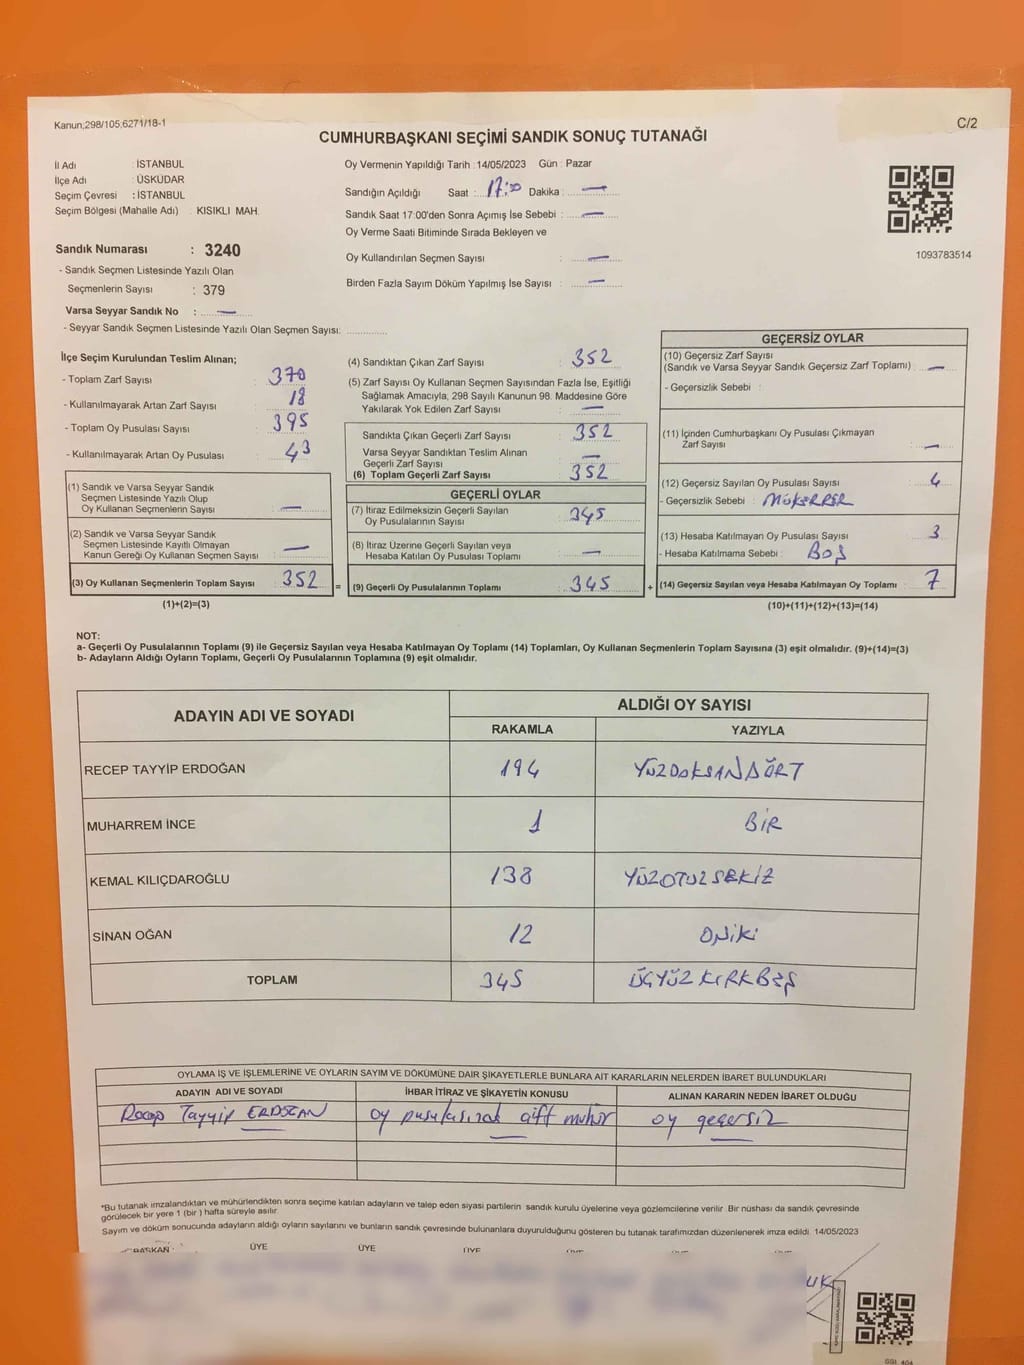 Kanun;298/105,6271/18-1
C/2
CUMHURBAŞKANI SEÇİMİ SANDIK SONUÇ TUTANAĞI
İl Adı : İSTANBUL
İlçe Adı : ÜSKÜDAR
Seçim Çevresi : İSTANBUL
Seçim Bölgesi (Mahalle Adı) : KISIKLI MAH.
Sandık Numarası : 3240
- Sandık Seçmen Listesinde Yazılı Olan
Seçmenlerin Sayısı : 379
Varsa Seyyar Sandık No : —
- Seyyar Sandık Seçmen Listesinde Yazılı Olan Seçmen Sayısı:
Oy Vermenin Yapıldığı Tarih : 14/05/2023 Gün : Pazar
Sandığın Açıldığı Saat : 17:00 Dakika : —
Sandık Saat 17:00'den Sonra Açımış İse Sebebi : —
Oy Verme Saati Bitiminde Sırada Bekleyen ve
Oy Kullandırılan Seçmen Sayısı : —
Birden Fazla Sayım Döküm Yapılmış İse Sayısı : —
1093783514
İlçe Seçim Kurulundan Teslim Alınan;
- Toplam Zarf Sayısı : 370
- Kullanılmayarak Artan Zarf Sayısı : 18
- Toplam Oy Pusulası Sayısı : 395
- Kullanılmayarak Artan Oy Pusulası : 43
(1) Sandık ve Varsa Seyyar Sandık
Seçmen Listesinde Yazılı Olup
Oy Kullanan Seçmenlerin Sayısı : —
(2) Sandık ve Varsa Seyyar Sandık
Seçmen Listesinde Kayıtlı Olmayan
Kanun Gereği Oy Kullanan Seçmen Sayısı : —
(3) Oy Kullanan Seçmenlerin Toplam Sayısı : 352 =
(1)+(2)=(3)
(4) Sandıktan Çıkan Zarf Sayısı : 352
(5) Zarf Sayısı Oy Kullanan Seçmen Sayısından Fazla İse, Eşitliği
Sağlamak Amacıyla, 298 Sayılı Kanunun 98. Maddesine Göre
Yakılarak Yok Edilen Zarf Sayısı : —
Sandıkta Çıkan Geçerli Zarf Sayısı : 352
Varsa Seyyar Sandıktan Teslim Alınan
Geçerli Zarf Sayısı : —
(6) Toplam Geçerli Zarf Sayısı : 352
GEÇERLİ OYLAR
(7) İtiraz Edilmeksizin Geçerli Sayılan
Oy Pusulalarının Sayısı : 345
(8) İtiraz Üzerine Geçerli Sayılan veya
Hesaba Katılan Oy Pusulaları Toplamı : —
(9) Geçerli Oy Pusulalarının Toplamı : 345 +
GEÇERSİZ OYLAR
(10) Geçersiz Zarf Sayısı
(Sandık ve Varsa Seyyar Sandık Geçersiz Zarf Toplamı) : —
- Geçersizlik Sebebi :
(11) İçinden Cumhurbaşkanı Oy Pusulası Çıkmayan
Zarf Sayısı : —
(12) Geçersiz Sayılan Oy Pusulası Sayısı : 4
- Geçersizlik Sebebi : MÜKERRER
(13) Hesaba Katılmayan Oy Pusulası Sayısı : 3
- Hesaba Katılmama Sebebi : BOŞ
(14) Geçersiz Sayılan veya Hesaba Katılmayan Oy Toplamı : 7
(10)+(11)+(12)+(13)=(14)
NOT:
a- Geçerli Oy Pusulalarının Toplamı (9) ile Geçersiz Sayılan veya Hesaba Katılmayan Oy Toplamı (14) Toplamları, Oy Kullanan Seçmenlerin Toplam Sayısına (3) eşit olmalıdır. (9)+(14)=(3)
b- Adayların Aldığı Oyların Toplamı, Geçerli Oy Pusulalarının Toplamına (9) eşit olmalıdır.
ADAYIN ADI VE SOYADI
ALDIĞI OY SAYISI
RAKAMLA YAZIYLA
RECEP TAYYİP ERDOĞAN 194 YÜZDOKSANDÖRT
MUHARREM İNCE 1 BİR
KEMAL KILIÇDAROĞLU 138 YÜZOTUZSEKİZ
SİNAN OĞAN 12 ONİKİ
TOPLAM 345 ÜÇYÜZKIRKBEŞ
OYLAMA İŞ VE İŞLEMLERİNE VE OYLARIN SAYIM VE DÖKÜMÜNE DAİR ŞİKAYETLERLE BUNLARA AİT KARARLARIN NELERDEN İBARET BULUNDUKLARI
ADAYIN ADI VE SOYADI İHBAR İTİRAZ VE ŞİKAYETİN KONUSU ALINAN KARARIN NEDEN İBARET OLDUĞU
Recep Tayyip ERDOĞAN oy pusulasında çift mühür oy geçersiz
*Bu tutanak imzalandıktan ve mühürlendikten sonra seçime katılan adayların ve talep eden siyasi partilerin sandık kurulu üyelerine veya gözlemcilerine verilir. Bir nüshası da sandık çevresinde
görülecek bir yere 1 (bir) hafta süreyle asılır.
Sayım ve döküm sonucunda adayların aldığı oyların sayılarını ve bunların sandık çevresinde bulunanlara duyurulduğunu gösteren bu tutanak tarafımızdan düzenlenerek imza edildi. 14/05/2023
BAŞKAN ÜYE ÜYE ÜYE